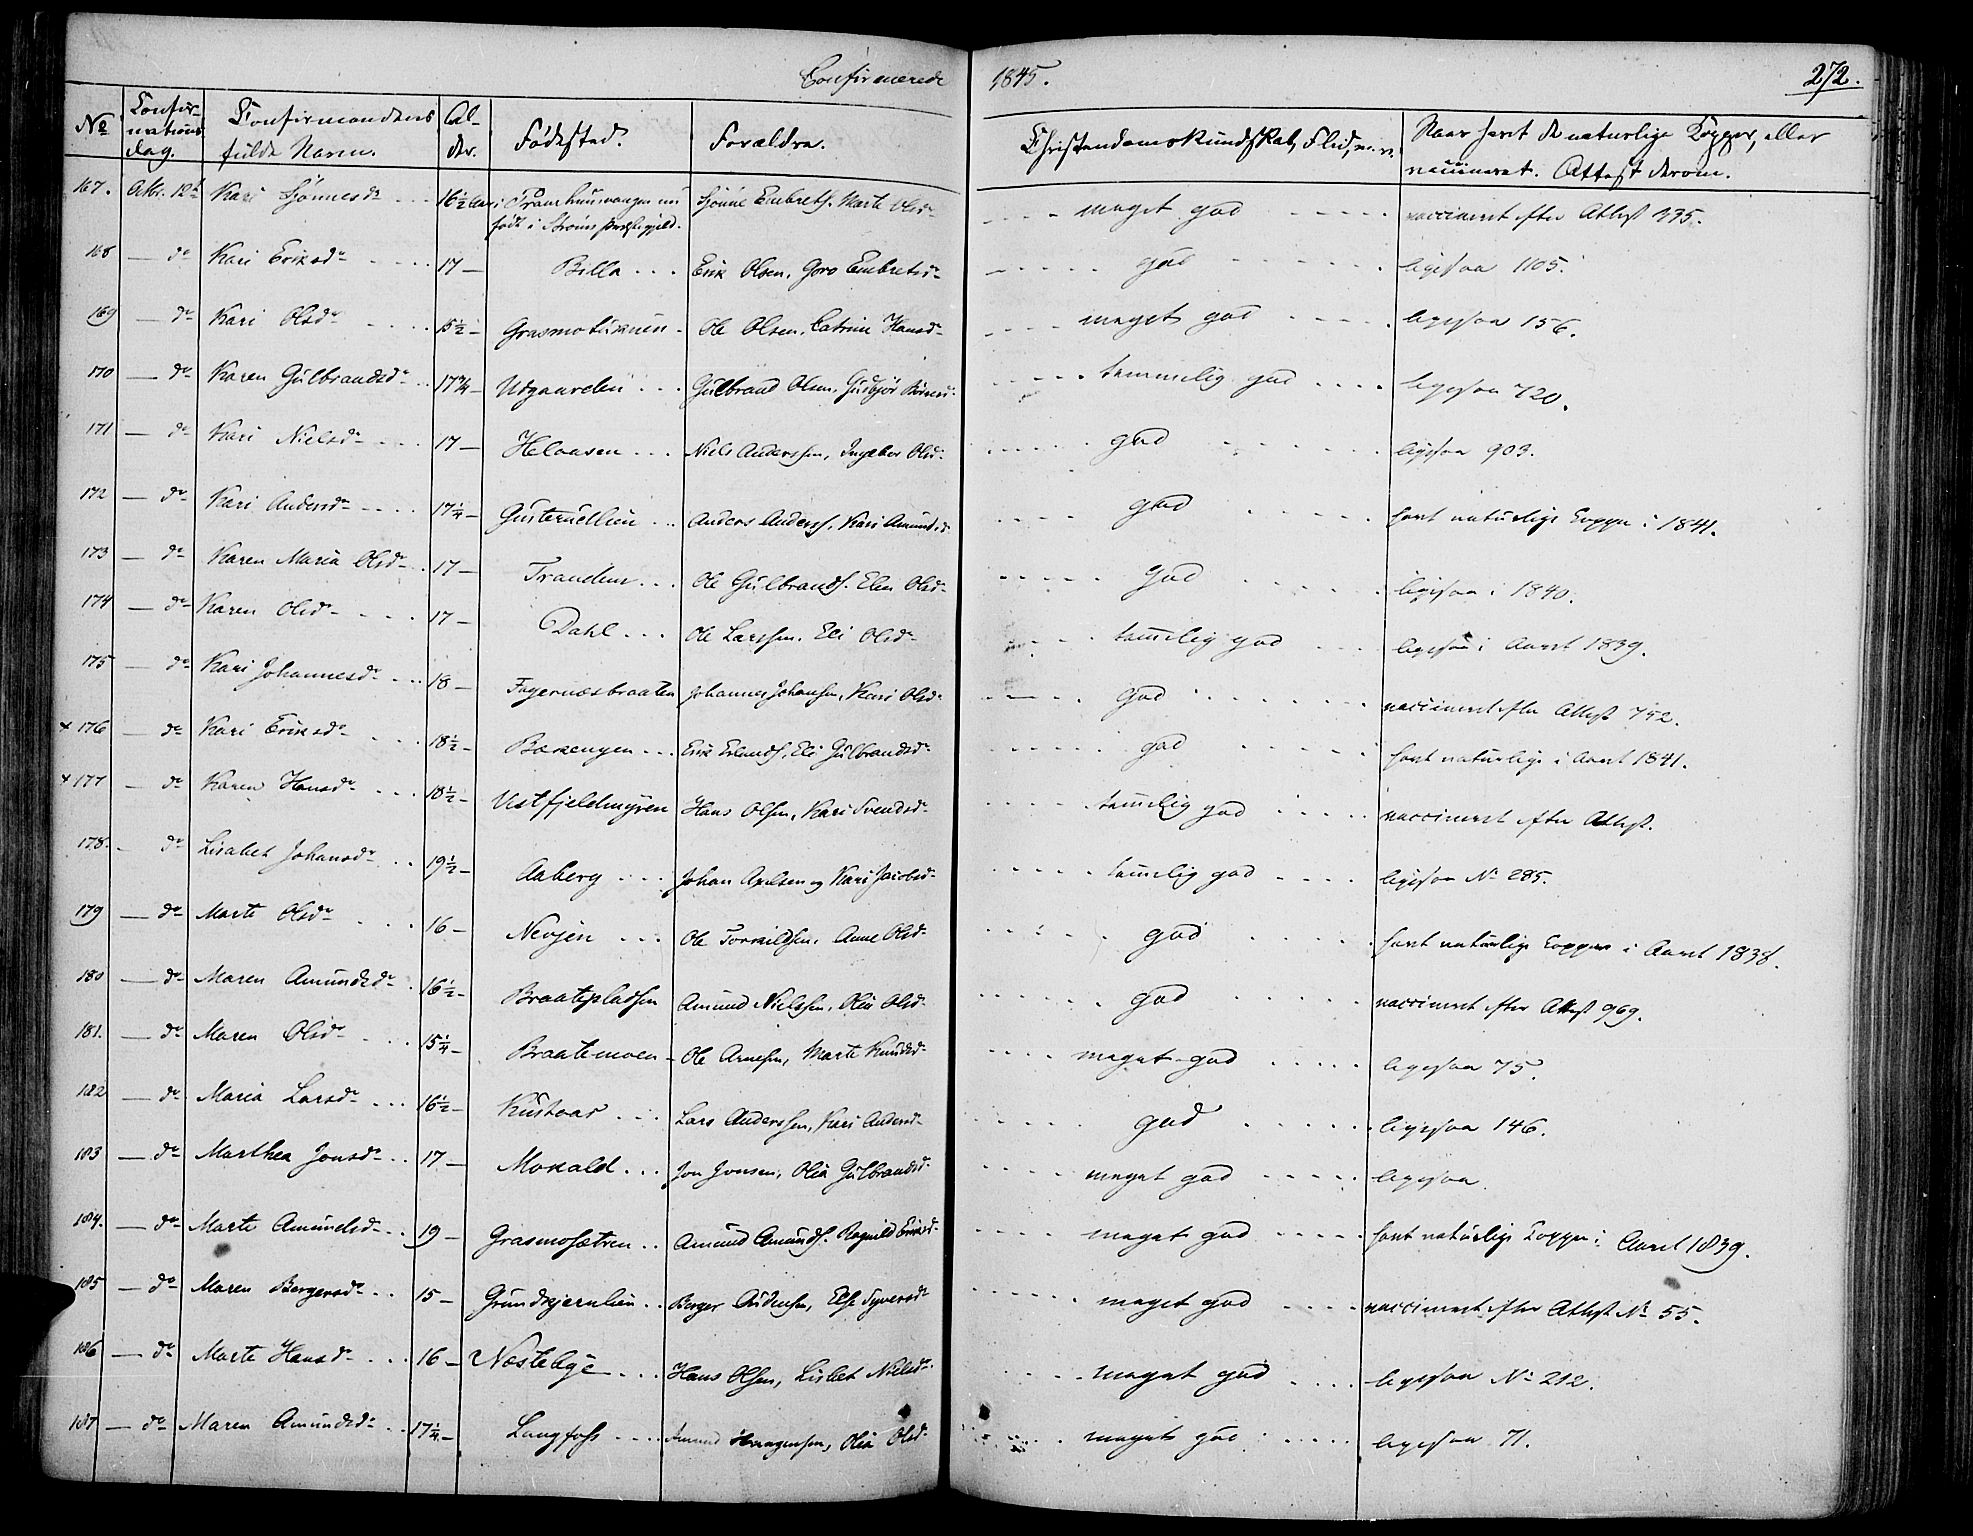 Confirmerede 1845. 272.
No Confirmations dag. Confirmandens fulde Navn. Alder. Fødested. Forældre. Christendomskundskab, Flid, Naar havt de naturlige Kopper, eller vaccineret. Attest derom.
167. Kari 16½ Embrets. Marte Olsd. meget god vaccineret efter Attest
født i
168 — do Kari Eriksdr 17 — Billa Erik Olsen, Goro Embretsdr god ligesaa 1105.
169 — do Kari Olsdr 15½ — Ole Olsen, Catrine Hansdr meget god ligesaa 156.
170 — do Karen Gulbrandsdr Gulbrand Olsen, temmelig god ligesaa 720.
171 — do Kari Nielsdr 17 — Helaasen Niels Anderssen, Ingebor Olsd. god ligesaa 903.
172 — do Kari Andersdr 17¼ — Anders Anderss. Kari Amundsd. god havt naturlige Kopper i 1841.
173 — do Karen Maria Olsdr 17 — Ole Gulbrands. Elen Olsdr god ligesaa i 1840.
174 — do Karen Olsdr 17 — Dahl Ole Larssen. Eli Olsdr temelig god ligesaa i Aaret 1839.
175 — do Kari Johannesdr 18 — Fagernæsbraaten Johannes Johansen, Kari Olsdr god vaccineret efter Attest 752.
× 176 — do Kari Eriksdr 18½ — Erik Erlends. Eli Gulbrandsdr god havt naturlige i Aaret 1841.
× 177 — do Karen Hansdr 18½ — Vestfjeldmyren Hans Olsen, Kari Svendsdr temelig god vaccineret efter Attest.
178. do Lisabet Johansdr 19½ — Aaberg Johan Axelsen og Kari Jacobsdr temelig god ligesaa No 285.
179 — do Marte Olsdr 16 — Ole Torkildsen. Anne Olsdr god havt naturlige Kopper i Aaret 1838.
180 — do Maren Amundsdr 16½ — Braatepladsen Amund Nielssen, Olia Olsdr god vaccineret efter Attest 969.
181. — do Maren Olsdr 15¼ — Braatemoen Ole Arnesen, Marte Knudsdr meget god ligesaa 75.
182 — do Maria Larsdr 16½ — Lars Anderssen, Kari Andersdr god ligesaa 146.
183 — do Marthea Jonsdr 17 — Mokald Jon Jonsen, Olia Gulbrandsdr meget god ligesaa
184. — do Marte Amundsdr 19 — Grasmosætren Amund Amunds. Ragnild Eriksdr meget god havt naturlige Kopper i Aaret 1839.
185 — do Maren Bergersdr 15 — Berger Audensen, Else Syversdr meget god vaccineret efter Attest No 55.
186 — do Marte Hansdr 16 — Næstebye Hans Olsen, Lisbet Nielsdr meget god ligesaa No 212.
187 — do Maren Amundsdr 17¼ — Langfoss Amund Olia Olsdr meget god ligesaa 71.